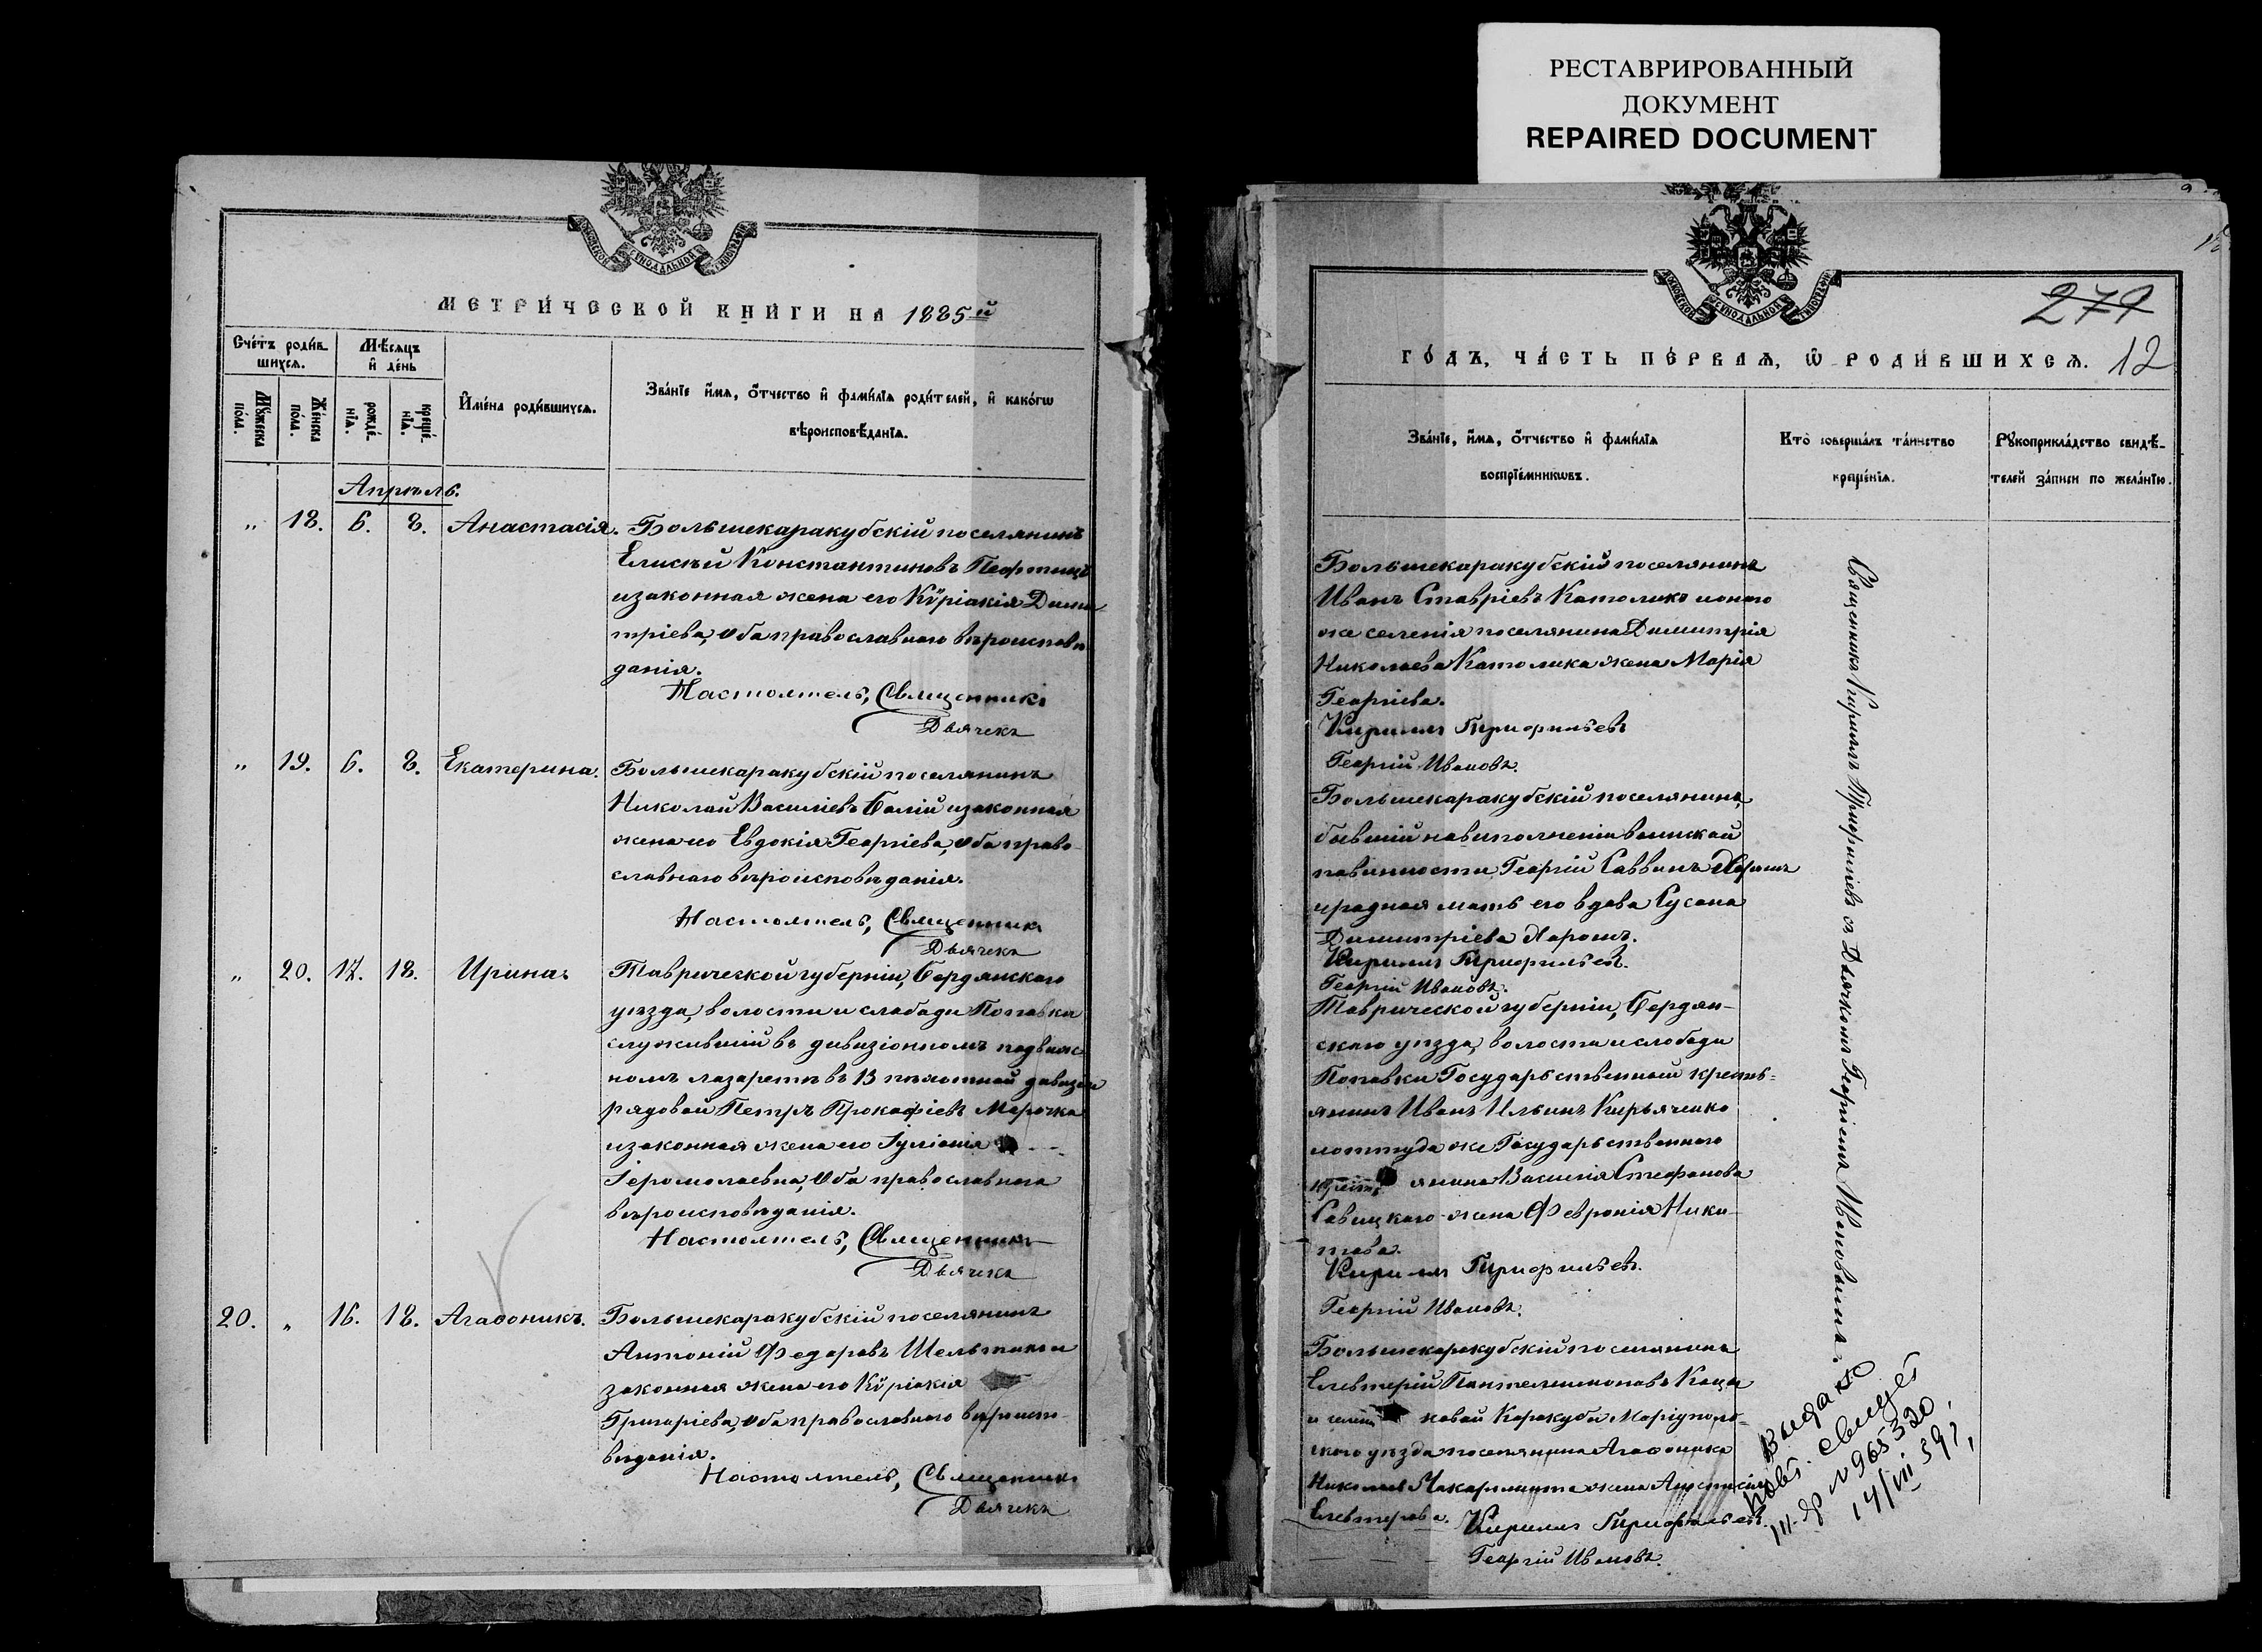 РЕСТАВРИРОВАННЫЙ
ДОКУМЕНТ
REPAIRED DOCUMENT
МЕТРИ́ЧЕСКОЙ КНИ́ГИ НА 1885й
Сче́тъ роди́в-
шихсѧ.
Мѣ́сѧцъ
и҆ де́нь
Мꙋ́жеска
по́ла.
Же́нска
по́ла.
рожде́-
нїѧ.
креще́-
нїѧ.
И҆мена̀ роди́вшихсѧ.
Зва́нїе и҆́мѧ, ѻ҆́тчество и҆ фами́лїѧ роди́телей, и҆ како́гѡ
вѣроисповѣ́данїѧ.
Апрѣль.
" 18. 6. 8. Анастасія. Большекаракубскій поселянинъ
Елисѣй Константиновъ
изаконная жена его Кѵріакія Дими
тріева, оба православнаго вѣроисповѣ
данія.
Настоятель, Священникъ
Дьячекъ
" 19. 6. 8. Екатерина. Большекаракубскій поселянинъ
Николай Василіевъ Балій изаконная
жена его Евдокія Георгіева, оба право-
славнаго вѣроисповѣданія.
Настоятель, Священникъ
Дьячекъ
" 20. 17. 18. Ирина. Таврической губерніи, Бердянскаго
уѣзда, волости и слободи Поповки
служившій въ дивизіонномъ подвиж
номъ лазаретѣ въ 13 пѣхотной дивизіи
рядовой Петръ Прокофіевъ Марочка
изаконная жена его Іуліанія
Іеромолаевна, оба православнаго
вѣроисповѣданія.
Настоятель, Священникъ
Дьячекъ
20. " 16. 18. Агаѳоникъ. Большекаракубскій поселянинъ
Антоній Федоровъ
законная жена его Кѵріакія
Григоріева, оба православнаго вѣроиспо-
вѣданія.
Настоятель, Священникъ
Дьячекъ
279
12
ГО́ДЪ, ЧА́СТЬ ПЕ́РВАѦ, Ѡ҆ РОДИ́ВШИХСѦ.
Зва́нїе, и҆́мѧ, ѻ҆́тчество и҆ фами́лїѧ
воспрїе́мникѡвъ.
Кто̀ соверша́лъ та́инство
креще́нїѧ.
Рꙋкоприкла́дство свидѣ́-
телей за́писи по жела́нїю.
Большекаракубскій поселянинъ
Иванъ Ставріевъ Католикъ ионаго
же селенія поселянина Димитрія
Николаева Католика жена Марія
Георгіева.
Кириллъ Трифильевъ
Георгій Ивановъ.
Большекаракубскій поселянинъ,
бывшій навиполненіи воинской
повинности Георгій Саввинъ Хорошъ
иродная мать его вдова Сусана
Димитріева Хорошъ.
Кириллъ Трифильевъ.
Георгій Ивановъ.
Таврической губерніи, Бердян-
скаго уѣзда, волости и слободи
Поповки Государственный кресть-
янинъ Иванъ Ильинъ Кирьяченко
иоттуда же Государственнаго
янина Василія Стефанова
Савицкаго жена Февронія Ники-
това.
Кириллъ Трифильевъ.
Георгій Ивановъ.
Большекаракубскій поселянинъ
Елевтерій Пантелеимоновъ Коци
новой Каракуби Маріуполь-
скаго уѣзда поселянина Агаѳоника
Николаева жена Анастасія
Елевтерова. Кириллъ Трифильевъ.
Георгій Ивановъ.
Священникъ Кириллъ Трифильевъ съ Дьячкомъ Георгіемъ Ивановымъ.
Видано
повт. свидет
№ 965320,
14/VII 39г,